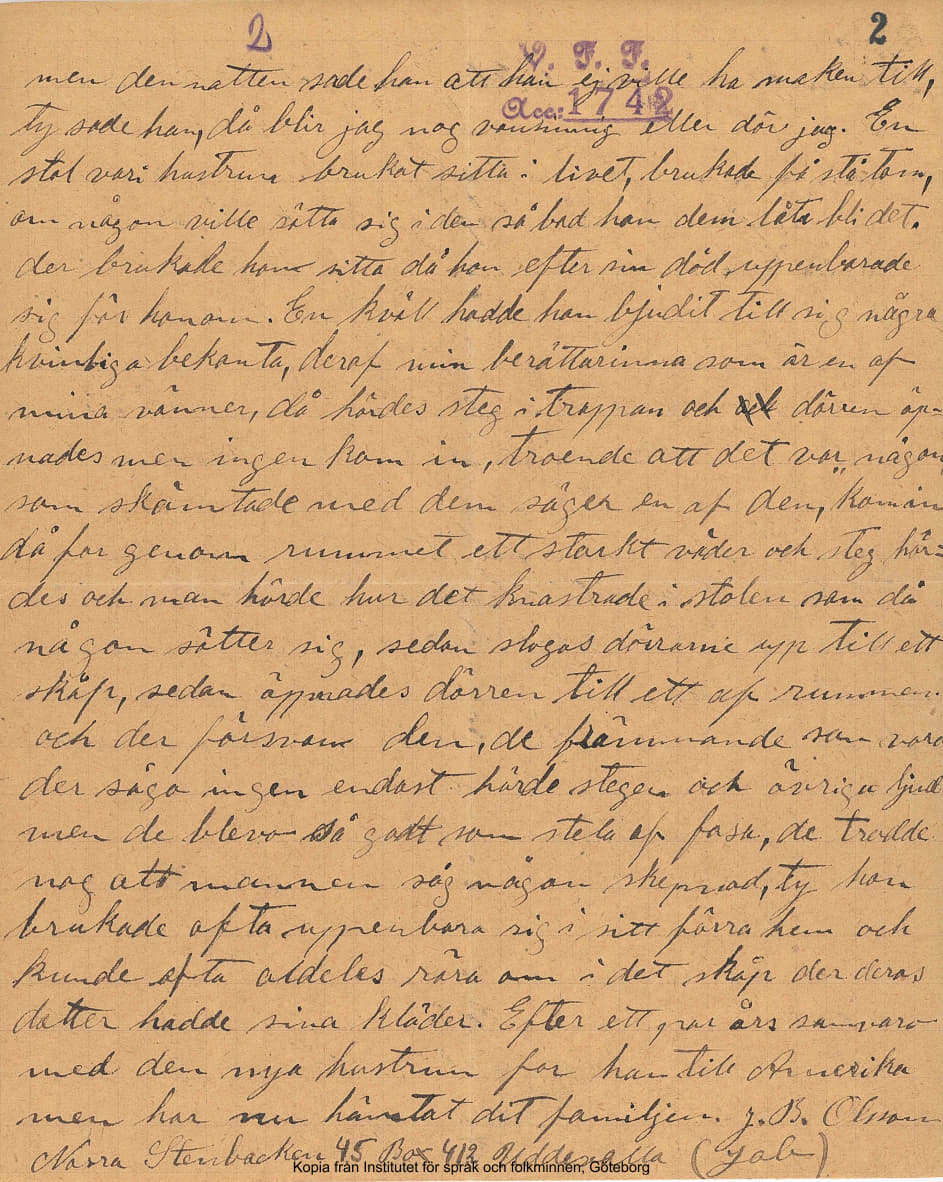 2
2
V. F. F.
men den natten sade han att han ej ville ha maken till,
Acc: 1742
ty sade han, då blir jag nog vansinnig eller dör jag. En
stol vari hustrun brukat sitta i livet, brukade få stå tom,
om någon ville sätta sig i den så bad han dem låta bli det.
der brukade hon sitta då hon efter sin död uppenbarade
sig för honom. En kväll hadde han bjudit till sig några
kvinliga bekanta, deraf min berättarinna som är en af
mina vänner, då hördes steg i trappan och dörren öp-
nades men ingen kom in, troende att det var någon
som skämtade med dem säger en af den, "Kom in
då for genom rummet ett starkt väder och steg hör=
des och man hörde hur det knastrade i stolen som då
någon sätter sig, sedan slogos dörrarne upp till ett
skåp, sedan öppnades dörren till ett af rummen
och der försvann den, de främmande som voro
der sågo ingen endast hörde stegen och övriga ljud
men de blevo så gott som stela af fasa, de trodde
nog att mannen såg någon skepnad, ty hon
brukade ofta uppenbara sig i sitt förra hem och
kunde ofta aldeles röra om i det skåp der deras
dotter hadde sina kläder. Efter ett par års samvaro
med den nya hustrun for han till Amerika
men har nu hämtat dit familjen. J. B. Olsson
Norra Stenbacken 45 Box 412 Uddevalla (Job)
Kopia från Institutet för språk och folkminnen, Göteborg